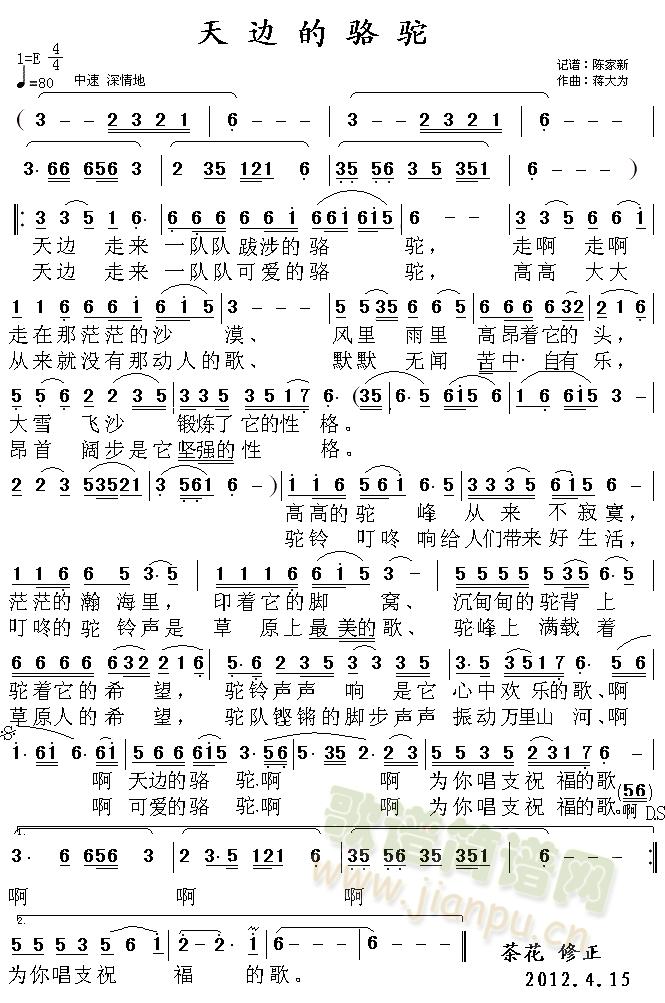 天边的骆驼
1=E 4/4
♩=80 中速 深情地
记谱：陈家新
作曲：蒋大为
( 3 - - 2 3 2 1 | 6 - - - | 3 - - 2 3 2 1 | 6 - - - |
3· 66 656 3 | 2 35 121 6 | 35 56 3 5 351 | 6 - - )
‖: 3 3 5 1 6· | 6 6 6 6 6 i 66i 6i5 | 6 - - | 3 3 5 6 6 i |
天边 走来 一队队跋涉的骆 驼， 走啊 走啊
天边 走来 一队队可爱的骆 驼， 高高 大大
1 1 6 6 6 i 6 i 5 | 3 - - - | 5 5 35 6 6 5 | 6 6 6 6 6 32 | 2 1 6 |
走在那茫茫的沙 漠、 风里 雨里 高昂着它的头，
从来就没有那动人的歌、 默默 无闻 苦中·自有 乐，
5 5 6 2 2 3 5 | 3 3 5 3 5 1 7 6· (35 | 6· 5 6 6i5 6 | 2 5 6 6i5 3 - |
大雪 飞沙 锻炼了它的性 格。
昂首 阔步是它坚强的性 格。
2 2 3 53521 | 3 561 6 - ) | i i 6 5 35 6· 5 | 3 3 5 2 5 3 - |
高高的驼 峰 从 来 不寂寞，
驼铃 叮咚 响给人们带来好生活，
1 1 6 6 5 3·5 | 1 1 1 6 6 i 5 3 - | 5 5 5 5 5 35 6 - |
茫茫的瀚 海里， 印着它的脚 窝、 沉甸甸的驼背 上
叮咚的驼 铃声是 草 原上最 美的歌、 驼峰上 满载 着
6 6 6 6 6 32 2 1 6 | 5· 6 2 3 5 3 2 3 | 5 5 6 3 5 1 7 6· 56 |
驼着它的希 望， 驼铃声声 响 是它 心中欢 乐的歌、啊
草原人的希 望， 驼队铿锵的脚步声声 振动万里山 河、啊
i· 6i 6· 6i | 5 6 6 6i5 3·56 | 5· 35 2·35 | 5 5 3 5 2 3 1 7 6 - |
啊 天边的骆 驼.啊 啊 为你唱支祝 福的歌
啊 可爱的骆 驼.啊 啊 为你唱支祝 福的歌。
(56
啊 D.S
1.
3· 6 656 3 | 2 3·5 121 6 | 35·56 335 351 | 6 - - - :‖
啊 啊 啊
2.
5 5 5 3 5 6 i | 2 - 2· i | 6 - - - | 6 - - - ‖
为你唱支祝 福 的歌。
歌谱简谱网
www.jianpu.cn
茶花 修正
2012.4.15